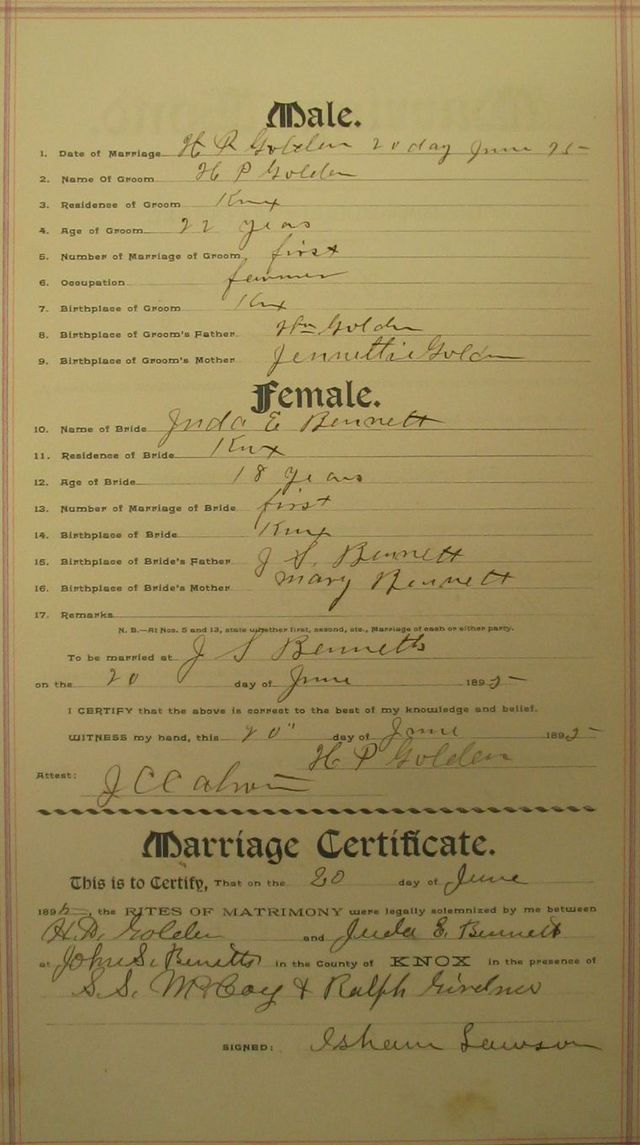 Male.
1. Date of Marriage H P Golden 20 day June 95
2. Name Of Groom H P Golden
3. Residence of Groom Knx
4. Age of Groom 22 years
5. Number of Marriage of Groom first
6. Occupation farmer
7. Birthplace of Groom Knx
8. Birthplace of Groom's Father Wm Golden
9. Birthplace of Groom's Mother Jennettie Golden
Female.
10. Name of Bride Juda E Bennett
11. Residence of Bride Knx
12. Age of Bride 18 years
13. Number of Marriage of Bride first
14. Birthplace of Bride Knx
15. Birthplace of Bride's Father J S. Bennett
16. Birthplace of Bride's Mother Mary Bennett
17. Remarks
N. B.—At Nos. 5 and 13, state whether first, second, etc., Marriage of each or either party.
To be married at J S Bennetts
on the 20 day of June 1895
I CERTIFY that the above is correct to the best of my knowledge and belief.
WITNESS my hand, this 20" day of June 1895
H P Golden
Attest: J C C
Marriage Certificate.
This is to Certify, That on the 20 day of June
1895, the RITES OF MATRIMONY were legally solemnized by me between
H. P. Golden and Juda E. Bennett
at John S. Benetts in the County of KNOX in the presence of
S. S. McCoy & Ralph Girdner
SIGNED: Isham Lawson